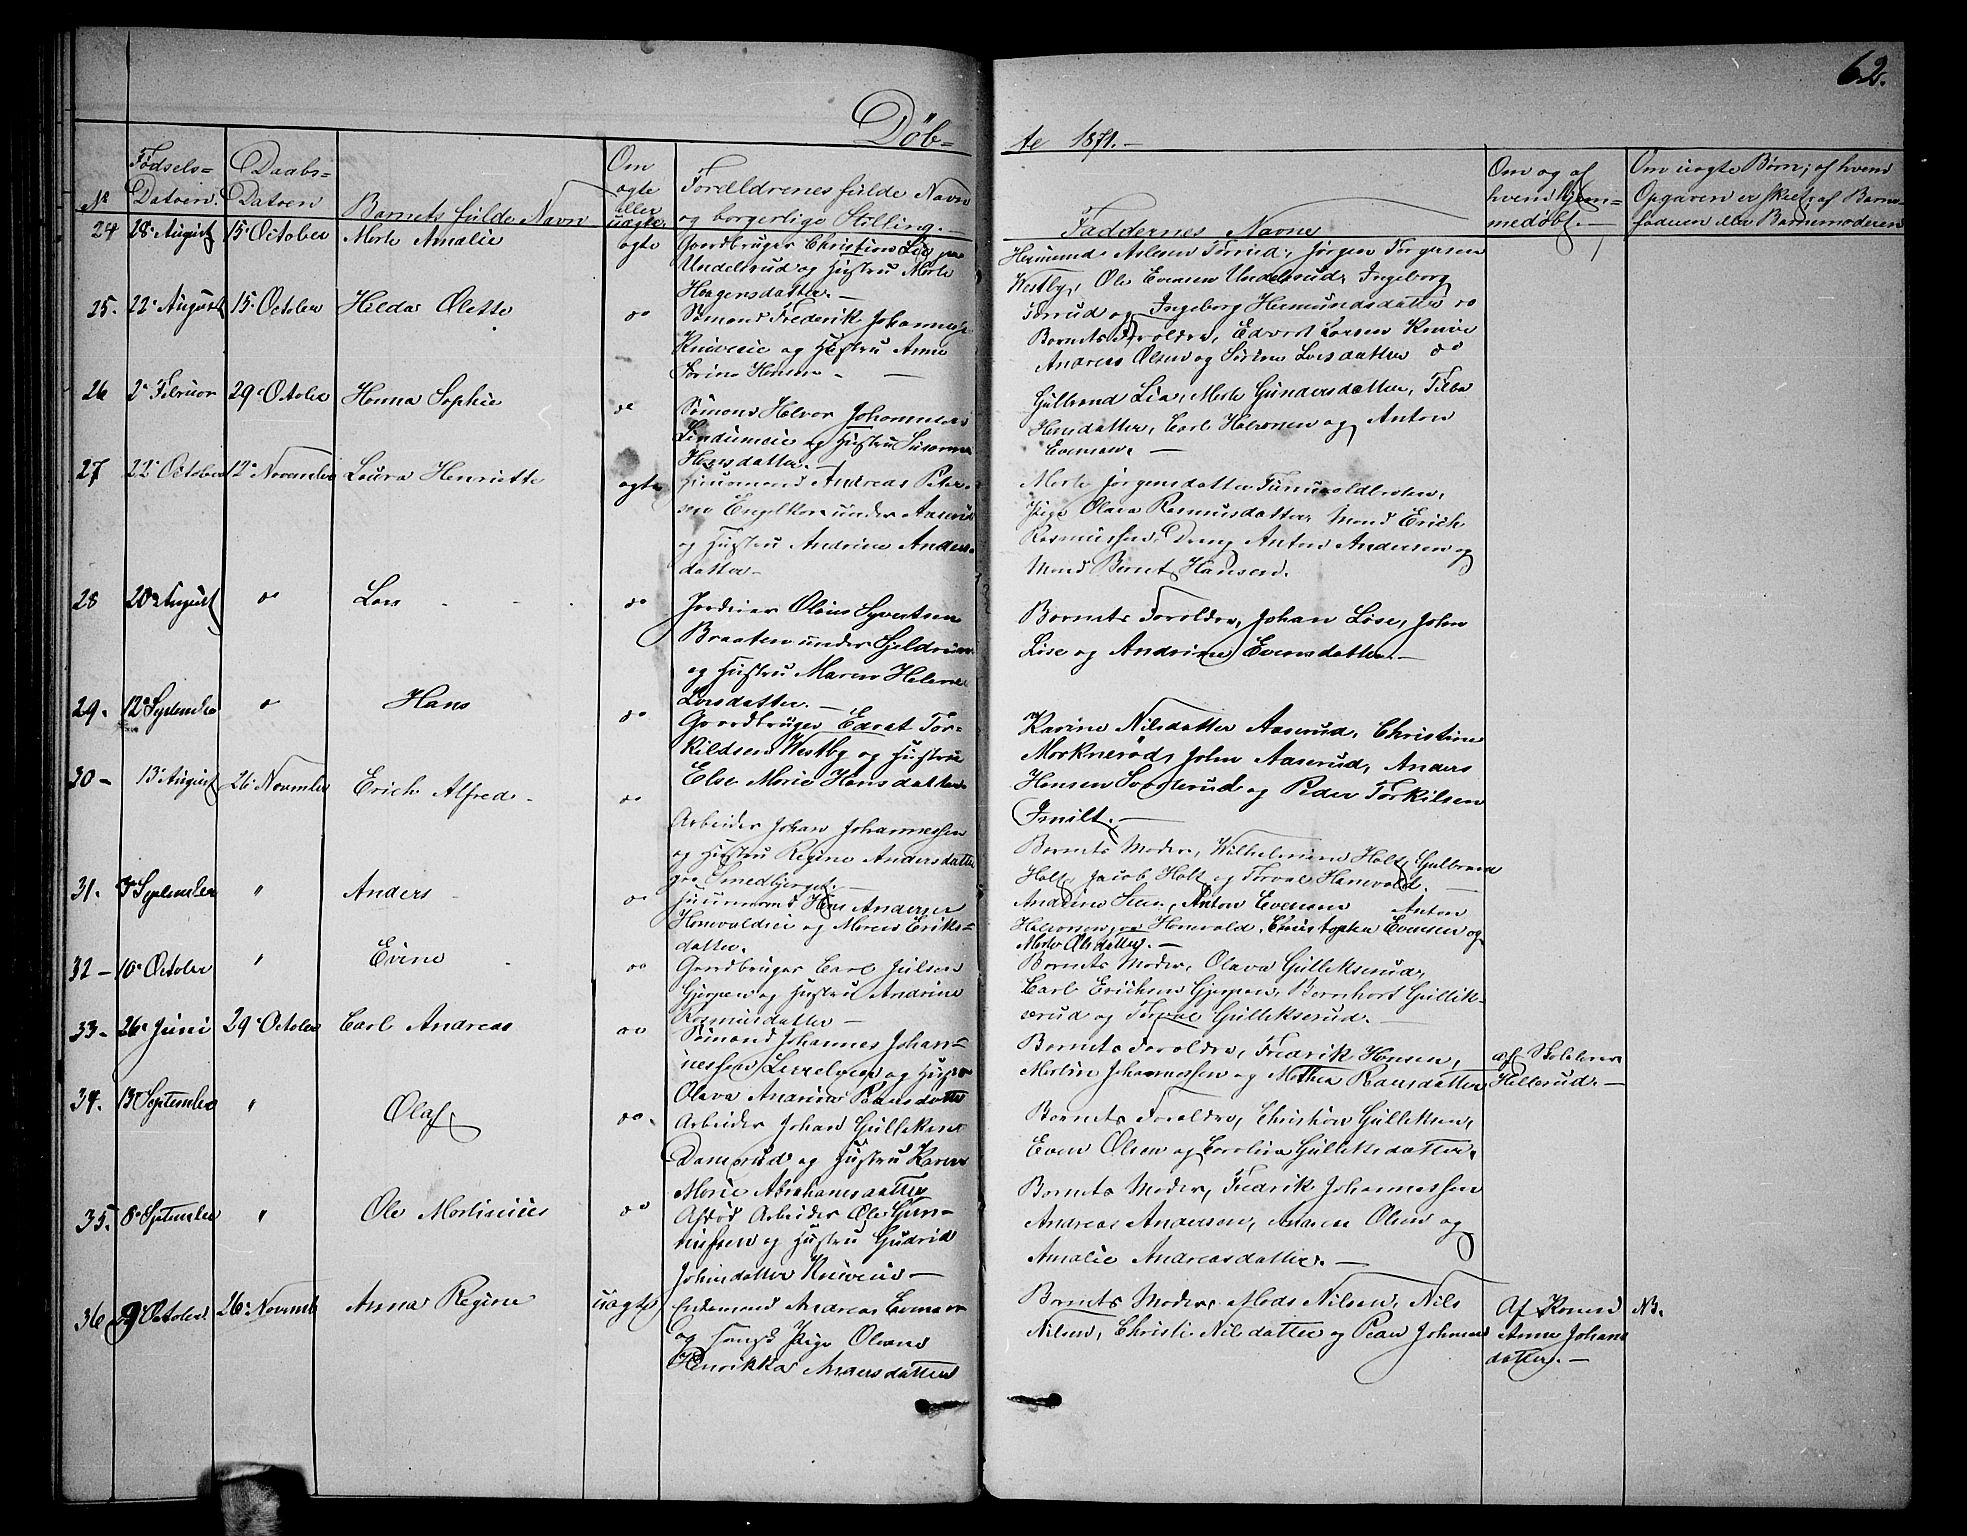 62.
Døb-
te 1871.-
No
Fødsels-
Datoen.
Daabs-
Datoen
Barnets fulde Navn
Om
ægte
eller
uægte.
Forældrenes fulde Navn
og borgerlige Stilling.
Faddernes Navne
Om og af
hvem hjem-
medøbt.
Om uægte Børn; af hvem
Opgaven er skeet af Barne-
faderen eller Barnemoderen
24 18 August 15 October Marte Amalie ægte
Gaardbruger Christian
Undelsrud og Hustru Marte
Haagensdatter.
Hermund Aslesen Tørrud, Jørgen Torgersen
Westby, Ole Evensen Undelsrud, Ingeborg
Tørrud og Ingeborg Hermundsdatter
25. 22 August 15 October Hilda Olette do
Sømand Frederik Johannes
og Hustru Anne
Torine Hansen
Barnets Forældre, Edvard Larsen Knive
Andreas Olsen og Sørine Larsdatter do
26 2 Februar 29 October Hanna Sophie do
Sømand Halvor Johannesen
og Hustru Susanne
Hansdatter.
Gulbrand Lia, Marte Gundersdatter, Tilba
Hansdatter, Carl Halvorsen og Anton
Evensen.
27 22 October 12 November Laura Henriette ægte
Huusmand Andreas Peter-
sen Engelhere under Aaserud
og Hustru Andrine Anders-
datter
Marte Jørgensdatter
Pige Olava Rasmusdatter, Mand Erich
Rasmussen, Dreng Anton Andersen og
Mand Bernt Hansen.
28 20 August do Lars do
Olaus Syvertsen
Braaten under
og Hustru Maren Helene
Larsdatter.
Barnets Forældre, Johan Løse, John
Løse og Andrine Evensdatter.
29. 12 September do Hans do
Gaardbruger Edvat Tor-
kildsen Westby og Hustru
Else Marie Hansdatter
Karine Nilsdatter Aaserud, Christine
Morknerød, John Aaserud, Anders
Hansen og Peder Torkilsen
30 13 August 26 November Erich Alfred do
Arbeider Johan Johannessen
og Hustru Regine Andersdatter
Smedbjerget.
Barnets Moder, Wilhelmine Holt, Gulbrand
Holt, Jacob Holt og Torval Hanevold.
31. 3 September " Anders do
Huusmand Hans Andersen
Hanevoldeie og Maren Eriks-
datter.
Andrine, Anton Evensen Anton
Halvorsen, Hanevold, Christopher Evensen og
Marte Olsdatter.
32 10 October " Evine do
Gaardbruger Carl Julsen
Gjerpen og Hustru Andrine
Rasmusdatter
Barnets Moder, Olava Gullikserud,
Carl Erichsen Gjerpen, Bernhart Gullik-
serud og Torval Gullikserud.
33 26 Juni 29 October Carl Andreas do
Sømand Johannes Johan-
nessen og Hustru
Olava Andrine Paulsdatter
Barnets Forældre, Fredrik Hansen,
Martin Johannessen og Mathea Paulsdatter
af Skolelærer
Hellerud.
34. 13 September " Olaf do
Arbeider Johan Gulliksen
Damsrud og Hustru Karen
Marie Abrahamsdatter
Barnets Forældre, Christian Gulliksen,
Even Olsen og Carolina Gulliksdatter.
35. 8 September " Ole Martinius do
Afdød Arbeider Ole Gun-
nufsen og Hustru Gudrid
Johnsdatter
Barnets Moder, Fredrik Johannessen
Andreas Andersen, Andrea Olsen og
Amalie Andreasdatter.
36 9 October 26 Novemb Anna Regine uægte
Enkemand Andreas Evensen
og Pige Oleana
Henrikka Andersdatter
Barnets Moder, Mads Nilsen, Nils
Nilsen, Christi Nilsdatter og Peder Johnsen
Af Konen
Anne Johans
datter.
NB.